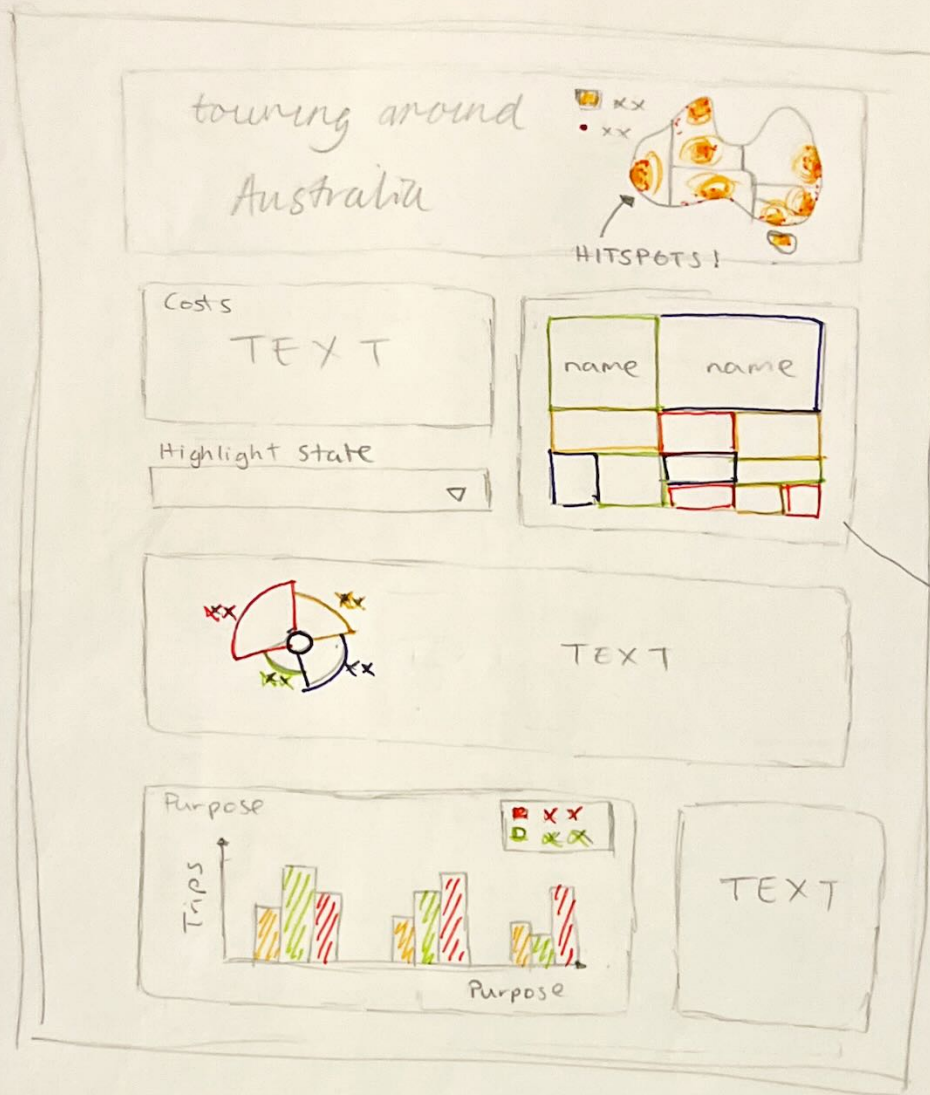 touring around
Australia
xx
xx
HITSPOTS!
Costs
TEXT
Highlight state
name
name
xx
xx
xx
xx
TEXT
Purpose
xx
xx
Trips
Purpose
TEXT